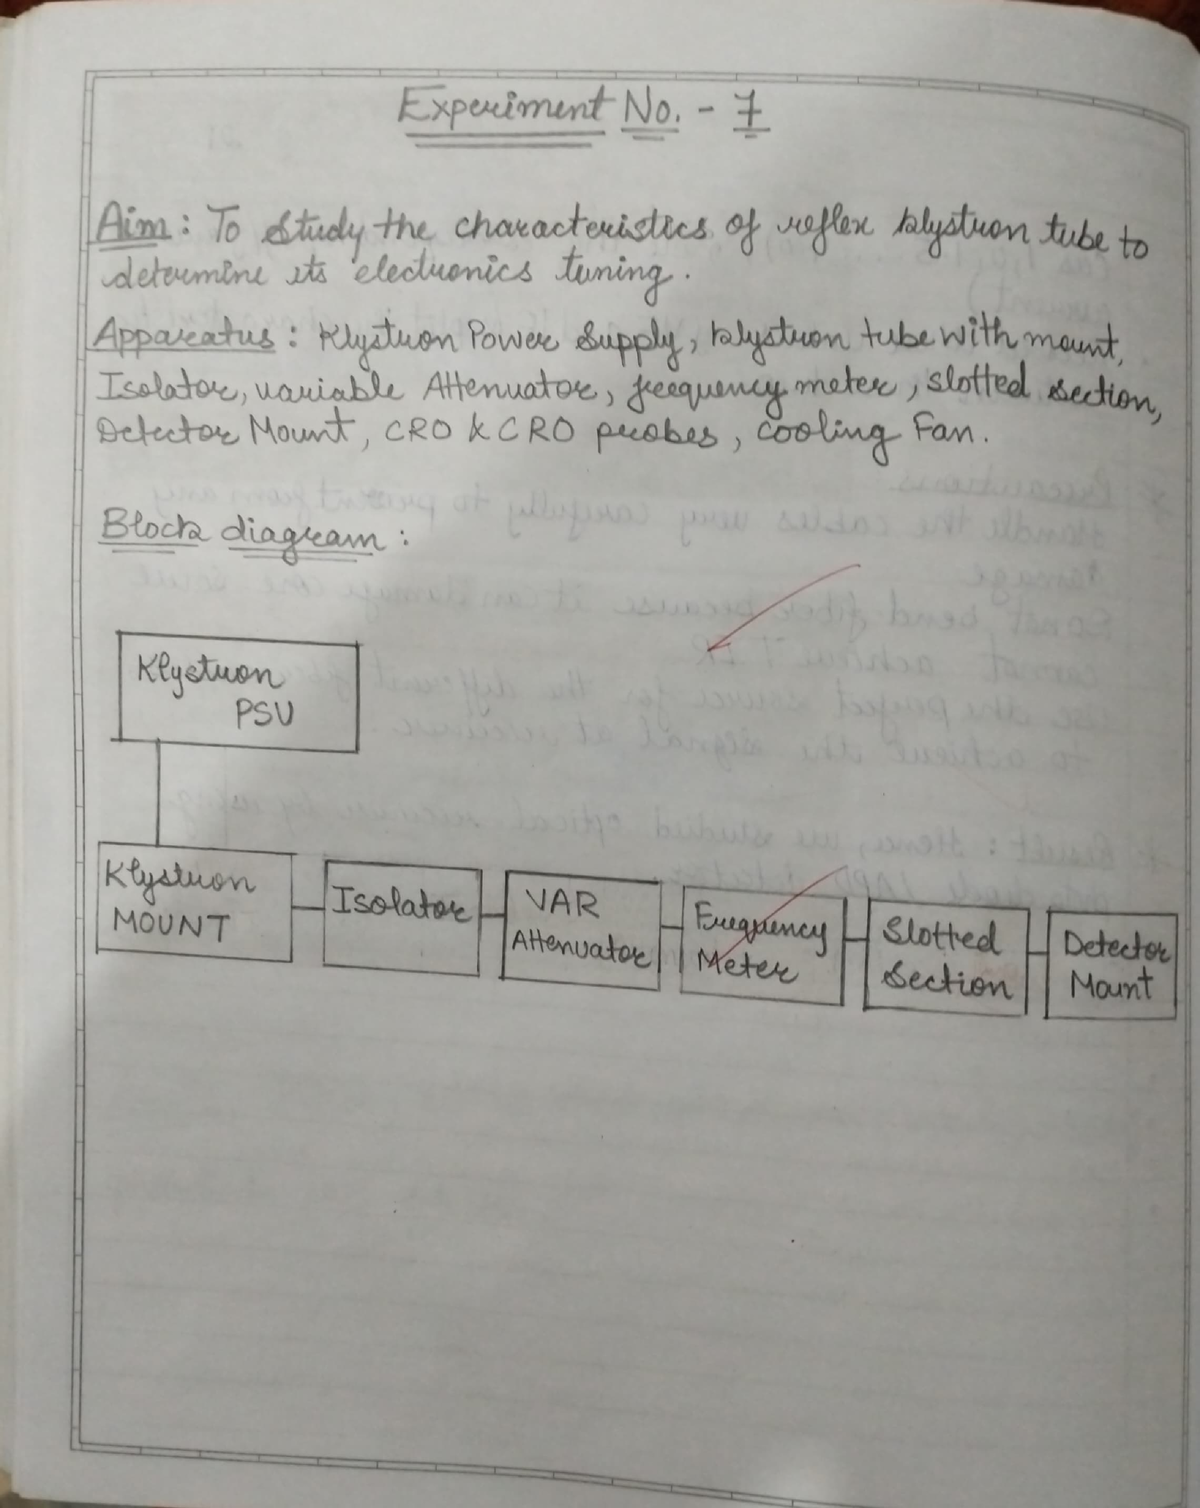 Experiment No. - 7
Aim: To study the characteristics of reflex klystron tube to
determine its electronics tuning.
Apparatus: Klystron Power Supply, klystron tube with mount,
Isolator, variable Attenuator, frequency meter, slotted section,
Detector Mount, CRO & CRO probes, cooling Fan.
Block diagram:
Klystron
PSU
Klystron
MOUNT
Isolator
VAR
Attenuator
Frequency
Meter
Slotted
Section
Detector
Mount